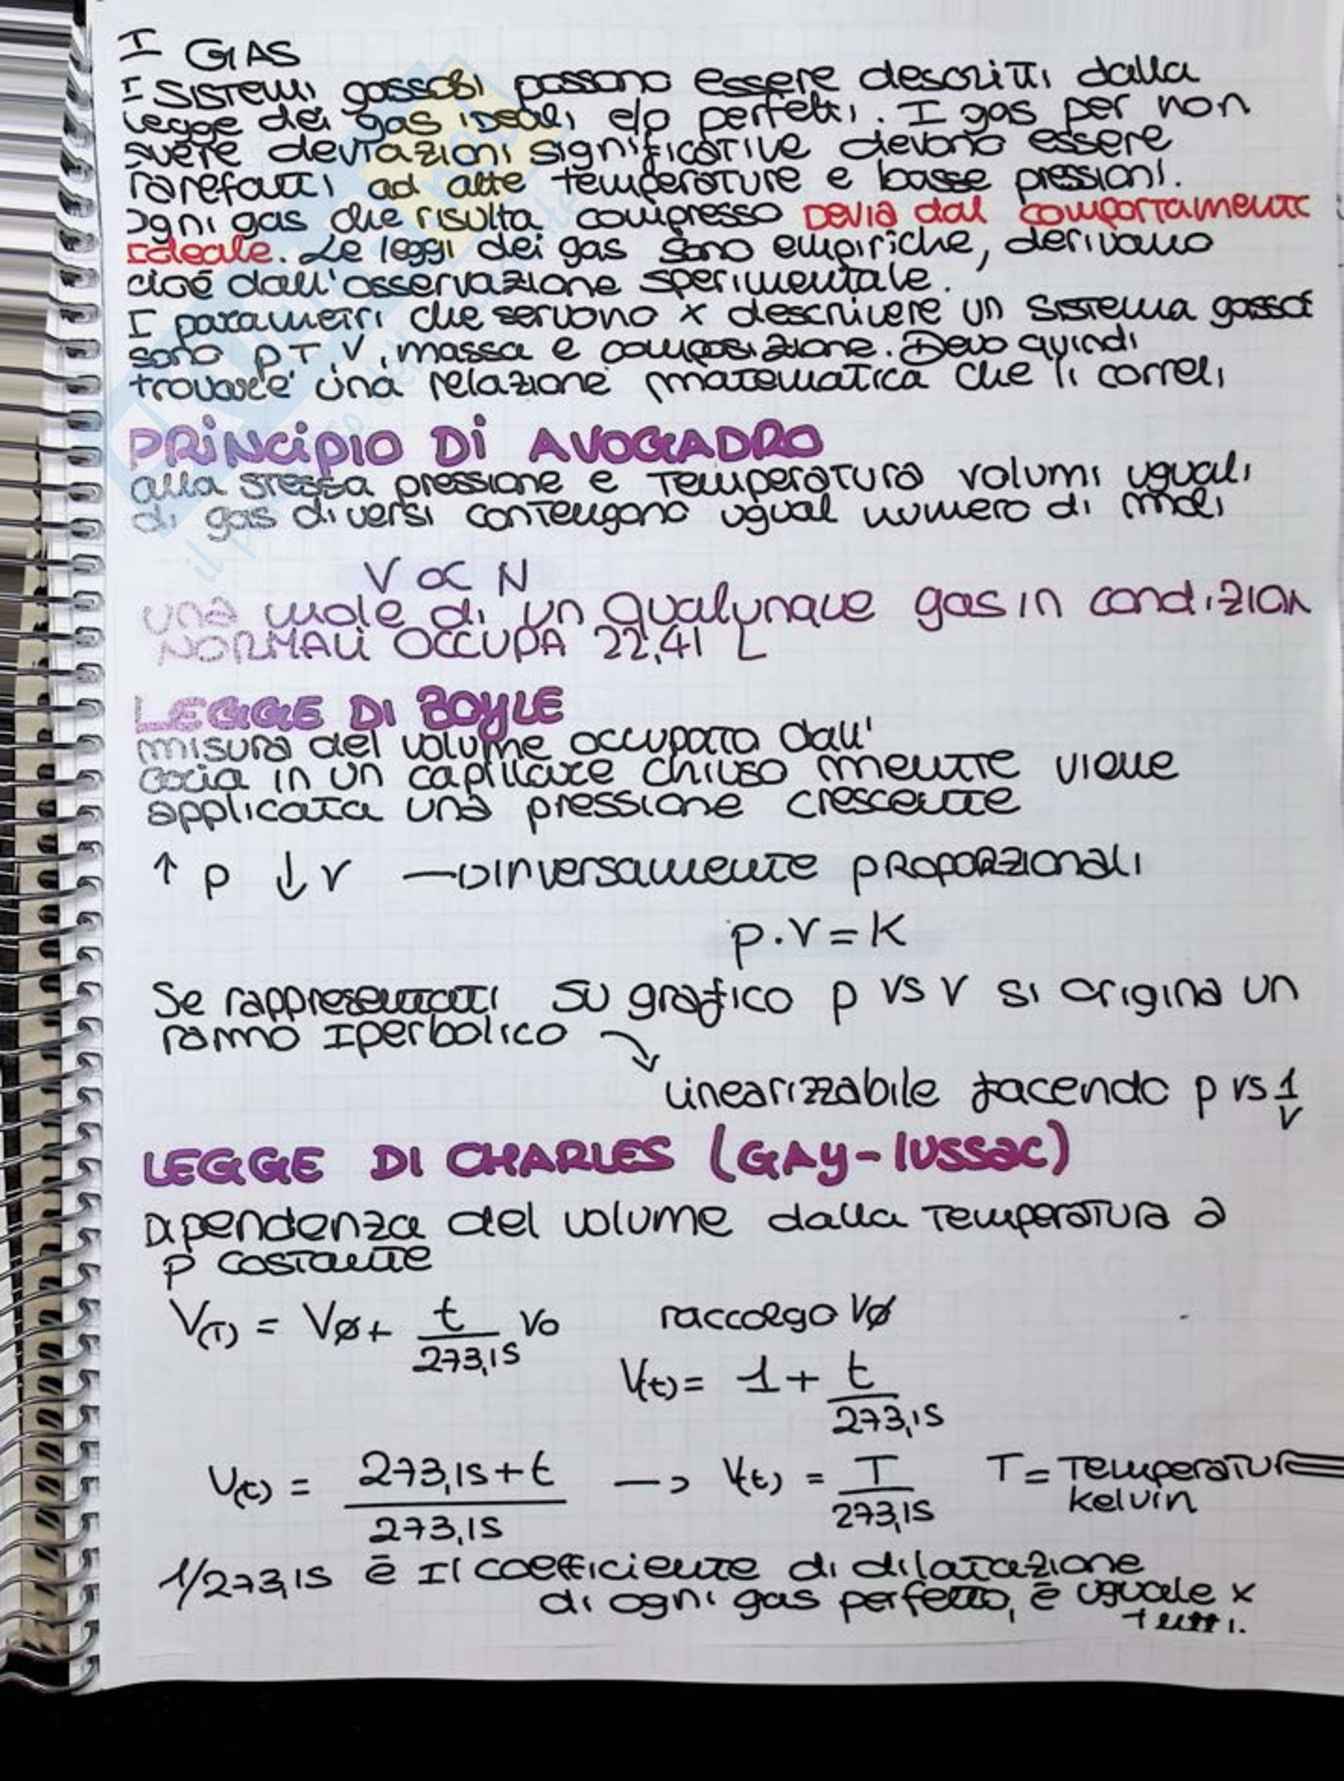 I GAS
I SISTEMI gassosi possono essere descritti dalla
legge dei gas ideali e/o perfetti. I gas per non
avere deviazioni significative devono essere
rarefatti ad alte temperature e basse pressioni.
Ogni gas che risulta compresso DEVIA dal comportamento
ideale. Le leggi dei gas sono empiriche, derivano
cioé dall'osservazione sperimentale.
I parametri che servono x descrivere un Sistema gassos
sono p T, V, massa e composizione. Devo quindi
trovare una relazione matematica che li correli
PRINCIPIO DI AVOGADRO
alla stessa pressione e temperatura volumi uguali
di gas diversi contengono ugual numero di moli
V ∝ N
una mole di un qualunque gas in condizion
NORMALI OCCUPA 22,41 L
LEGGE DI BOYLE
misura del volume occupato dall'
aria in un capillare chiuso mentre viene
applicata una pressione crescente
↑ p ↓ V → inversamente PROPORZIONALI
p·V = K
Se rappresentati su grafico p vs V si origina un
ramo Iperbolico
linearizzabile facendo p vs 1/V
LEGGE DI CHARLES (GAY-lussac)
Dipendenza del volume dalla Temperatura a
p costante
V(T) = VØ + t/273,15 Vo raccolgo VØ
V(t) = 1 + t/273,15
V(t) = 273,15+t/273,15 → V(t) = T/273,15 T = Temperatur
kelvin
1/273,15 è Il coefficiente di dilatazione
di ogni gas perfetto, è uguale x
tutti.